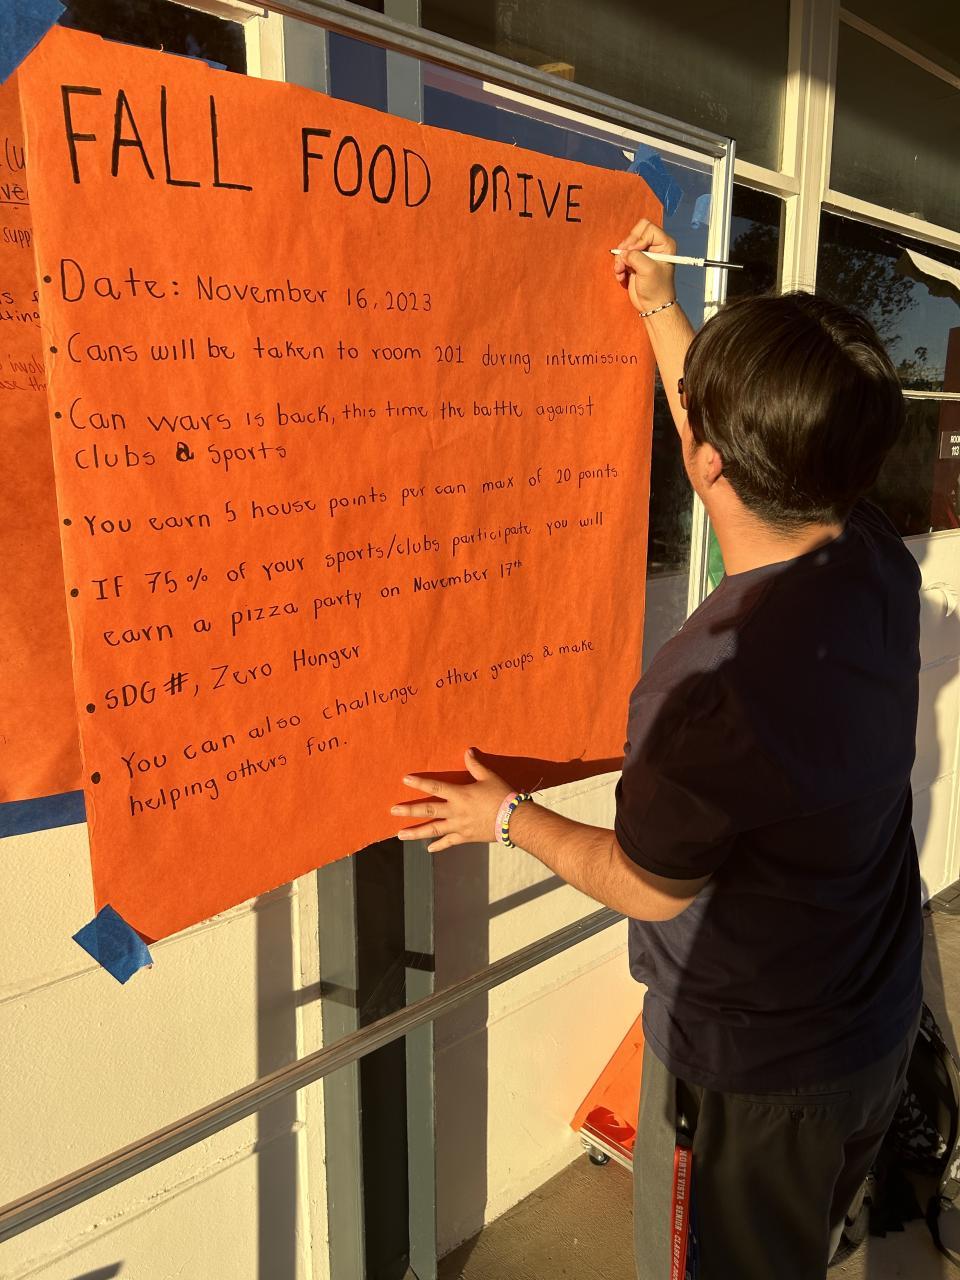 FALL FOOD DRIVE
• Date: November 16, 2023
• Cans will be taken to room 201 during intermission
• Can wars is back, this time the battle against
clubs & Sports
• You earn 5 house points per can max of 20 points
• IF 75% of your sports/clubs participate you will
earn a pizza party on November 17th
• SDG #, Zero Hunger
• You can also challenge other groups & make
helping others fun.
supp
involv
113
MONTE VISTA · SENIOR · CLASS OF